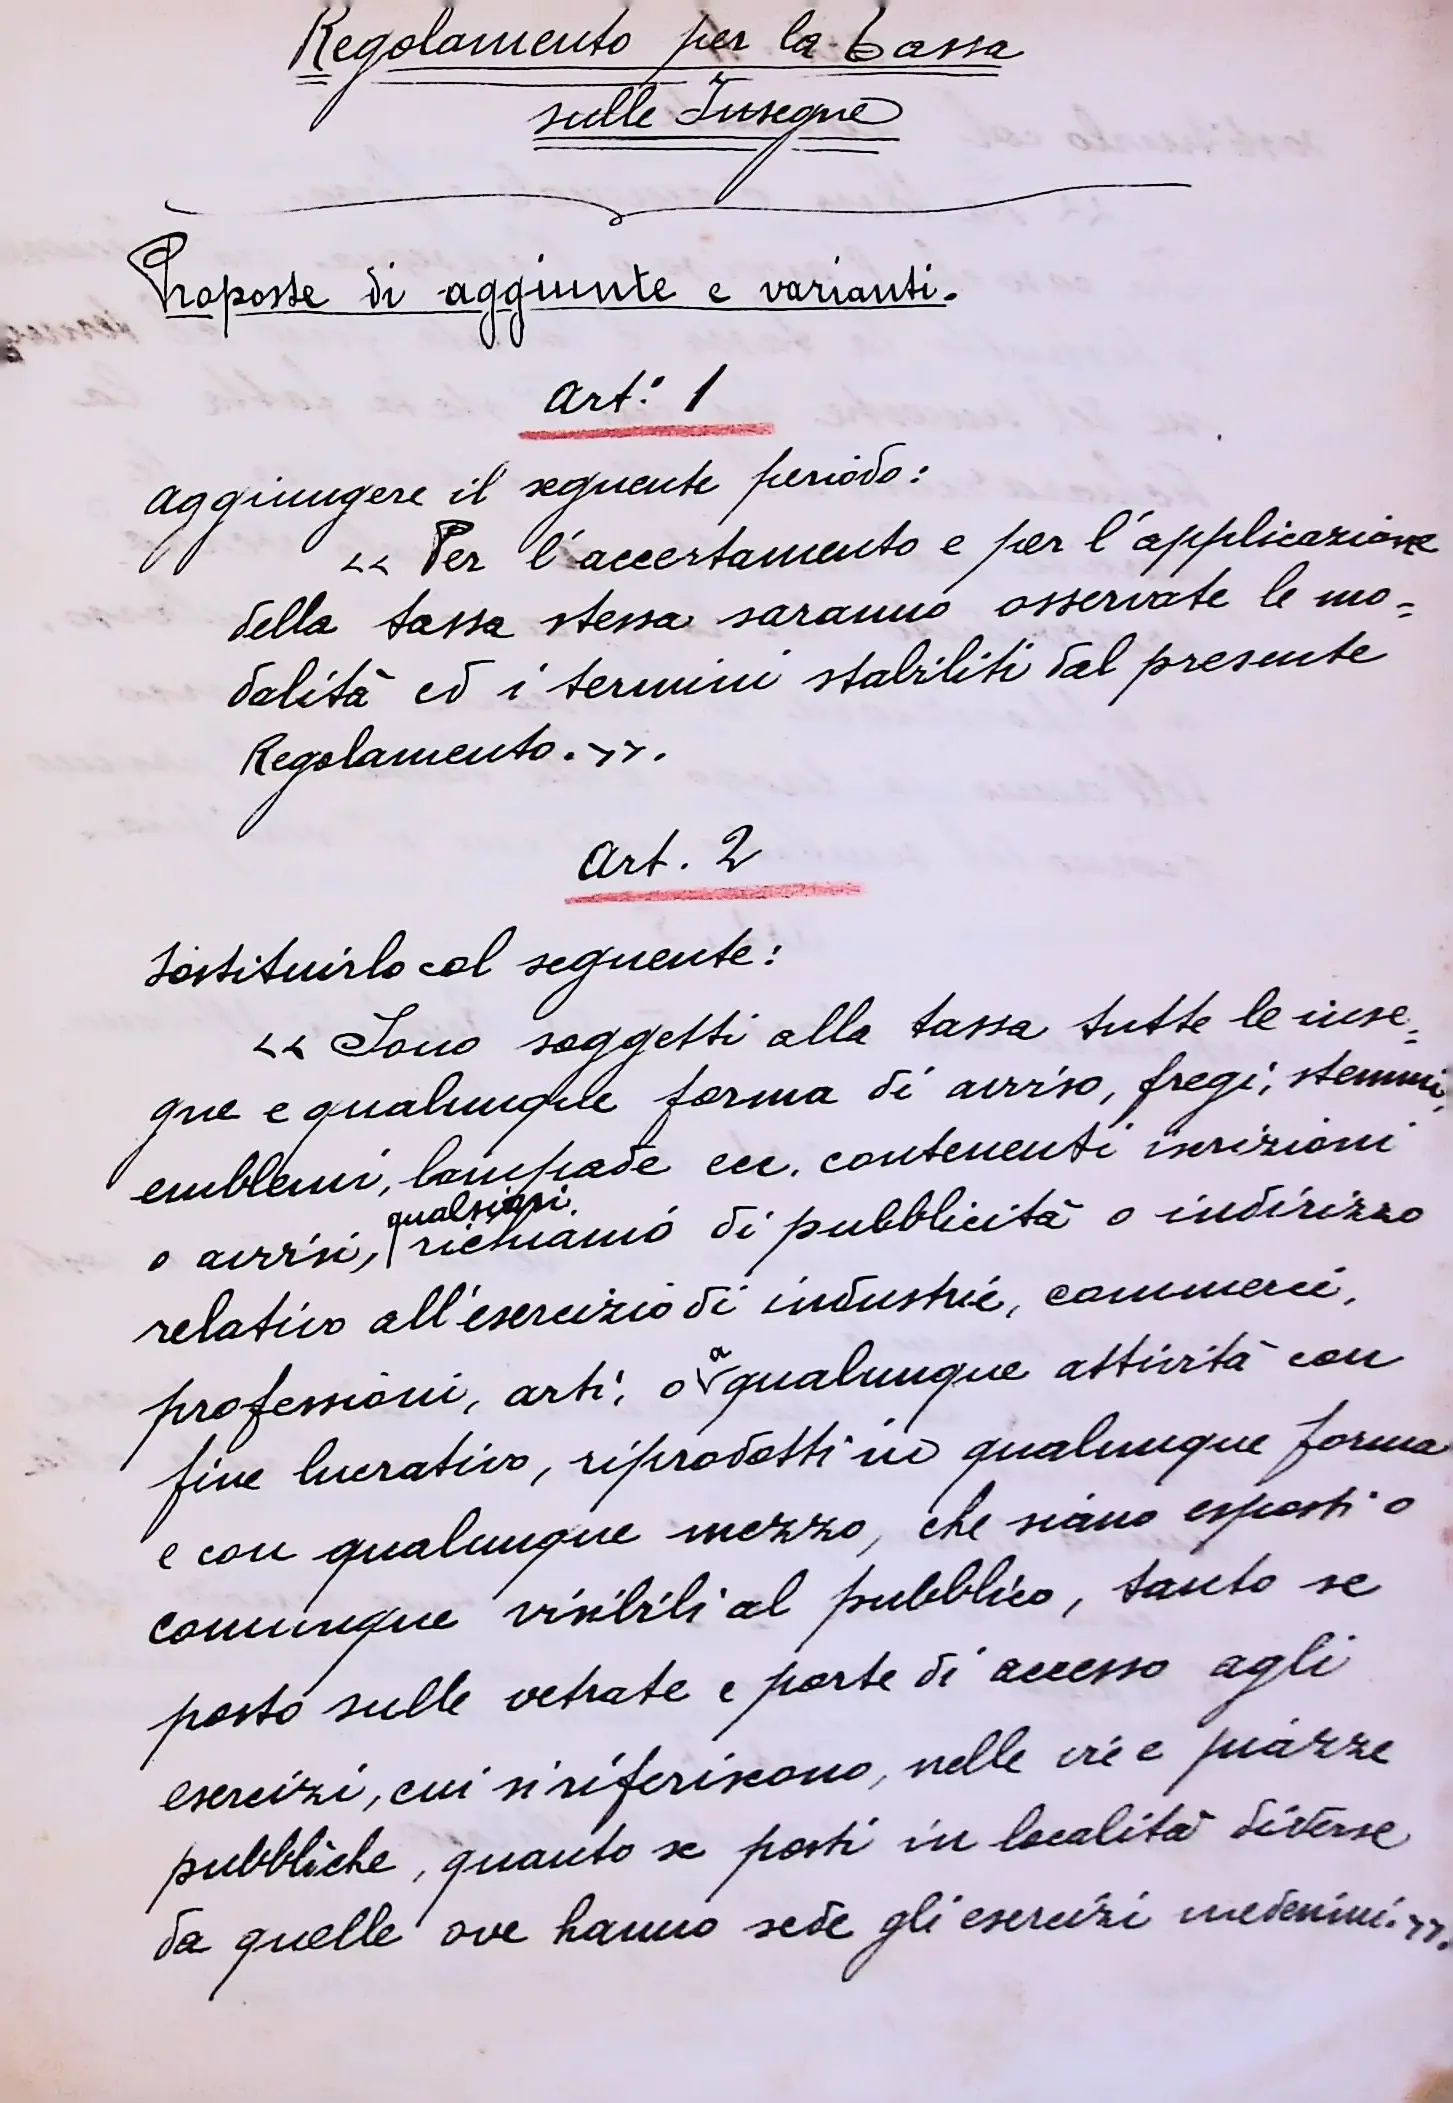 Regolamento per la Tassa
sulle Insegne
Proposte di aggiunte e varianti.
Art.° 1
Aggiungere il seguente periodo:
<< Per l'accertamento e per l'applicazione
della tassa stessa saranno osservate le mo=
dalità ed i termini stabiliti dal presente
Regolamento. >>.
Art. 2
Sostituirlo col seguente:
<< Sono soggetti alla tassa tutte le inse=
gne e qualunque forma di avviso, fregi, stemmi,
emblemi, lampade ecc. contenenti iscrizioni
qualsiasi
o avvisi, richiamo di pubblicità o indirizzo
relativo all'esercizio di industrie, commerci,
a
professioni, arti, o qualunque attività con
fine lucrativo, riprodotti in qualunque forma
e con qualunque mezzo, che siano esposti o
comunque visibili al pubblico, tanto se
posto sulle vetrate e porte di accesso agli
esercizi, cui si riferiscono, nelle vie e piazze
pubbliche, quanto se posti in località diverse
da quelle ove hanno sede gli esercizi medesimi. >>.